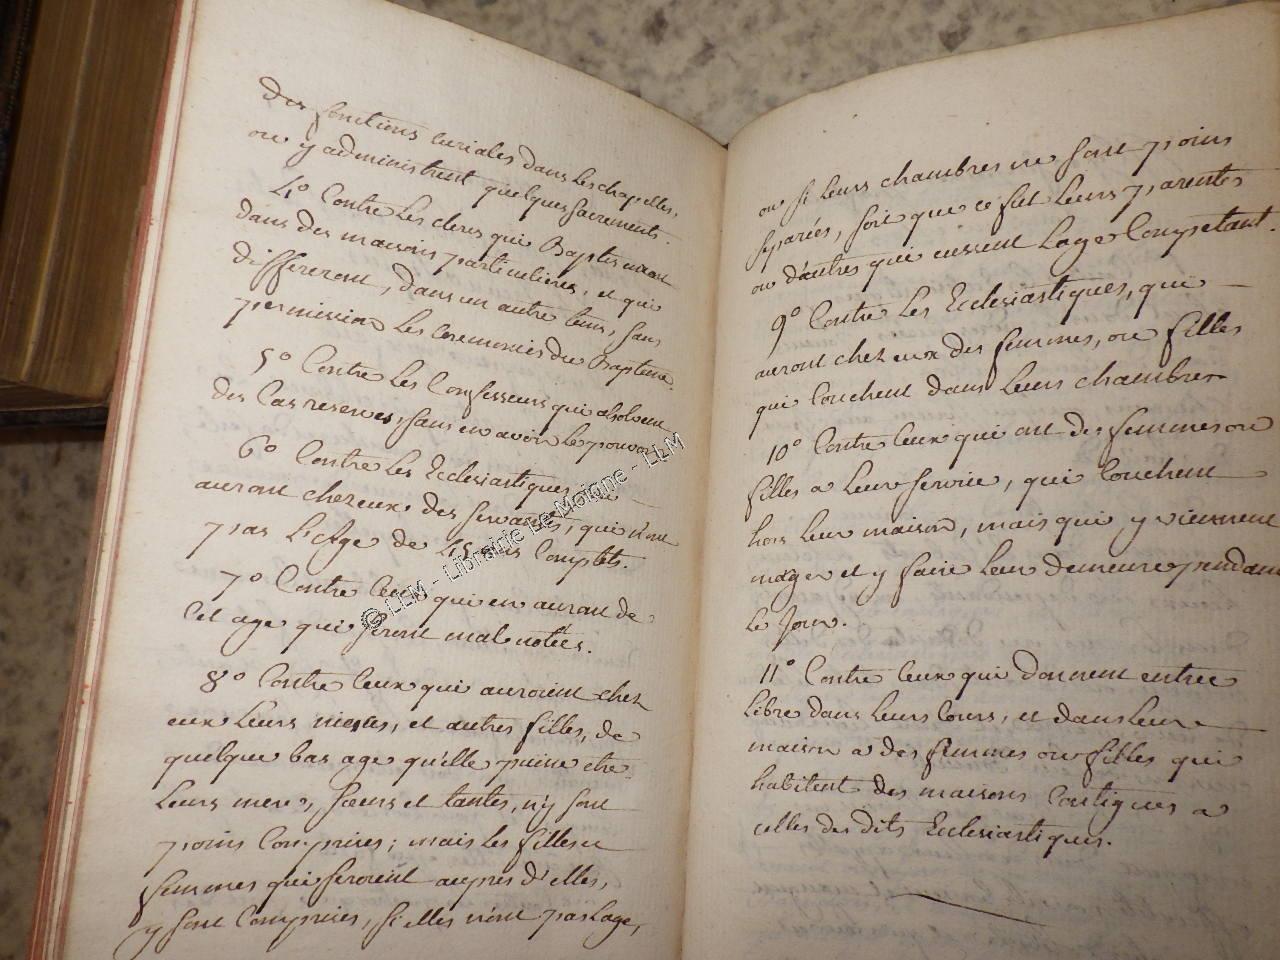 des fonctions curiales dans les chapelles,
ou y administrent quelques sacrements.
4° Contre les clercs qui Baptiseront
dans des maisons particulieres, et qui
differeront, dans un autre tems, sans
permission les ceremonies du Bapteme.
5° Contre les Confesseurs qui absolvent
des Cas reservés, sans en avoir le pouvoir
6° Contre les Ecclesiastiques, qui
auront chez eux des servantes, qui n'ont
pas l'Age de 45 ans Complets.
7° Contre ceux qui en auront de
Cet age qui seront mal notées.
8° Contre Ceux qui auroient chez
eux Leurs nieces, et autres filles, de
quelque bas age qu'elle puisse etre.
Leurs mere, soeurs et tantes, n'y sont
point Comprises; mais les filles ou
femmes qui seroient aupres d'elles,
y sont Comprises, si elles n'ont pas Lage,
ou si Leurs chambres ne sont point
separées, soit que ce soet Leurs parentes
ou d'autres qui eussent Lage Competant.
9° Contre Les Ecclesiastiques, qui
auront chez eux des femmes, ou filles
qui Couchent dans Leurs chambres
10° Contre Ceux qui ont des femmes ou
filles a Leur service, qui Couchent
hors Leur maison, mais qui y viennent
mager et y faire Leur demeure pendant
Le Jour.
11° Contre Ceux qui donnent entrée
Libre dans Leurs Cours, et dans Leur
maison a des femmes ou filles qui
habitent des maisons Contigues a
celles des dits Ecclesiastiques.
© LLM - Librairie Le Moigne - LLM